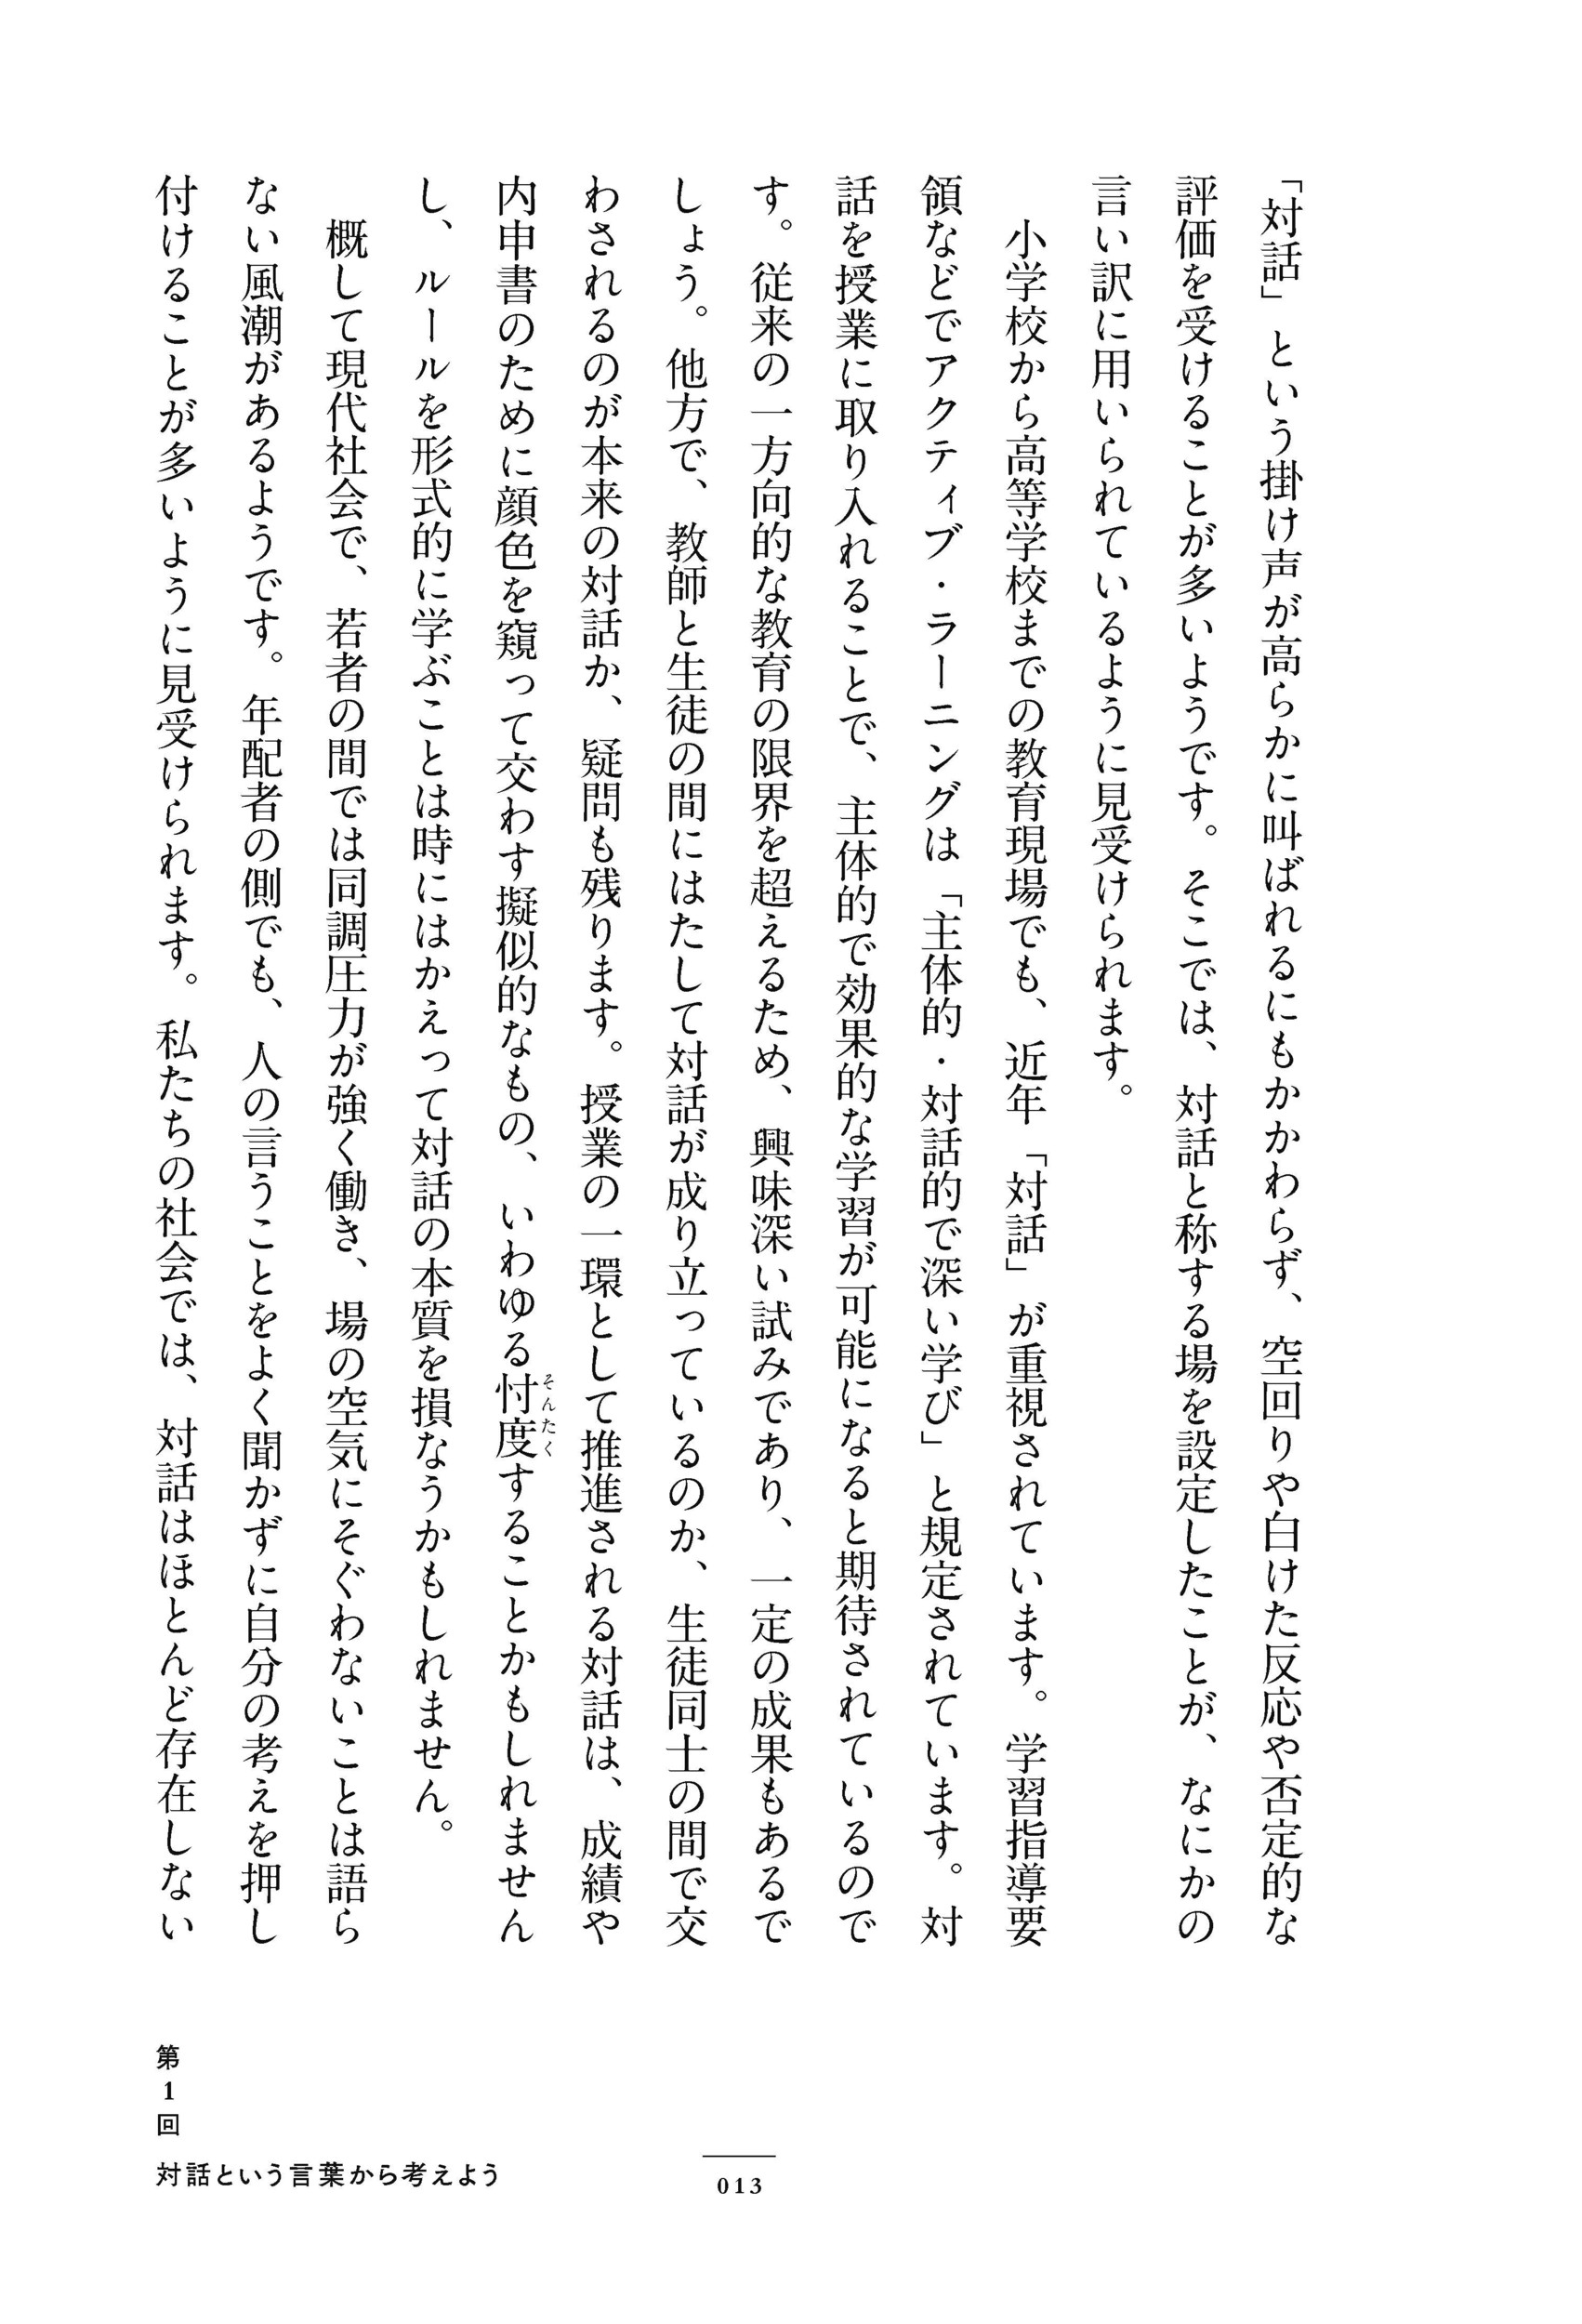 「対話」という掛け声が高らかに叫ばれるにもかかわらず、空回りや白けた反応や否定的な
評価を受けることが多いようです。そこでは、対話と称する場を設定したことが、なにかの
言い訳に用いられているように見受けられます。
　小学校から高等学校までの教育現場でも、近年「対話」が重視されています。学習指導要
領などでアクティブ・ラーニングは「主体的・対話的で深い学び」と規定されています。対
話を授業に取り入れることで、主体的で効果的な学習が可能になると期待されているので
す。従来の一方向的な教育の限界を超えるため、興味深い試みであり、一定の成果もあるで
しょう。他方で、教師と生徒の間にはたして対話が成り立っているのか、生徒同士の間で交
わされるのが本来の対話か、疑問も残ります。授業の一環として推進される対話は、成績や
内申書のために顔色を窺って交わす擬似的なもの、いわゆる忖度することかもしれません
そんたく
し、ルールを形式的に学ぶことは時にはかえって対話の本質を損なうかもしれません。
　概して現代社会で、若者の間では同調圧力が強く働き、場の空気にそぐわないことは語ら
ない風潮があるようです。年配者の側でも、人の言うことをよく聞かずに自分の考えを押し
付けることが多いように見受けられます。私たちの社会では、対話はほとんど存在しない
第1回
対話という言葉から考えよう
013